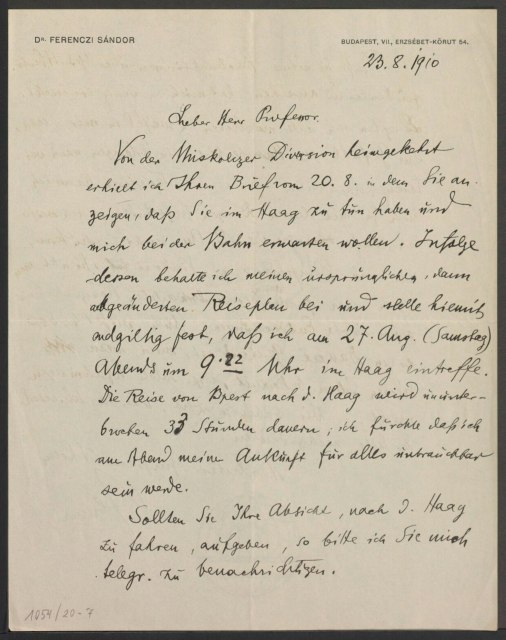 Dr. FERENCZI SÁNDOR
BUDAPEST, VII., ERZSÉBET-KÖRUT 54.
23.8.1910
Lieber Herr Professor.
Von der Miskolczer Diversion heimgekehrt
erhielt ich Ihren Brief vom 20.8. in dem Sie an-
zeigen, daß Sie im Haag zu tun haben und
mich bei der Bahn erwarten wollen. Infolge
dessen behalte ich meinen ursprünglichen, dann
abgeänderten Reiseplan bei und stelle hiemit
endgiltig fest, daß ich am 27. Aug. (Samstag)
Abends um 9.22 Uhr im Haag eintreffe.
Die Reise von Bpest nach d. Haag wird ununter-
brochen 33 Stunden dauern; ich fürchte daß ich
am Abend meiner Ankunft für alles unbrauchbar
sein werde.
Sollten Sie Ihre Absicht, nach d. Haag
zu fahren, aufgeben, so bitte ich Sie mich
telegr. zu benachrichtigen.
1054/20-7